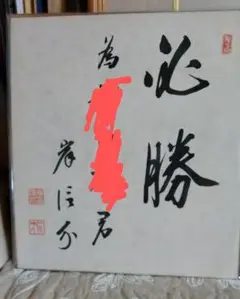 必勝
為 君
岸信介